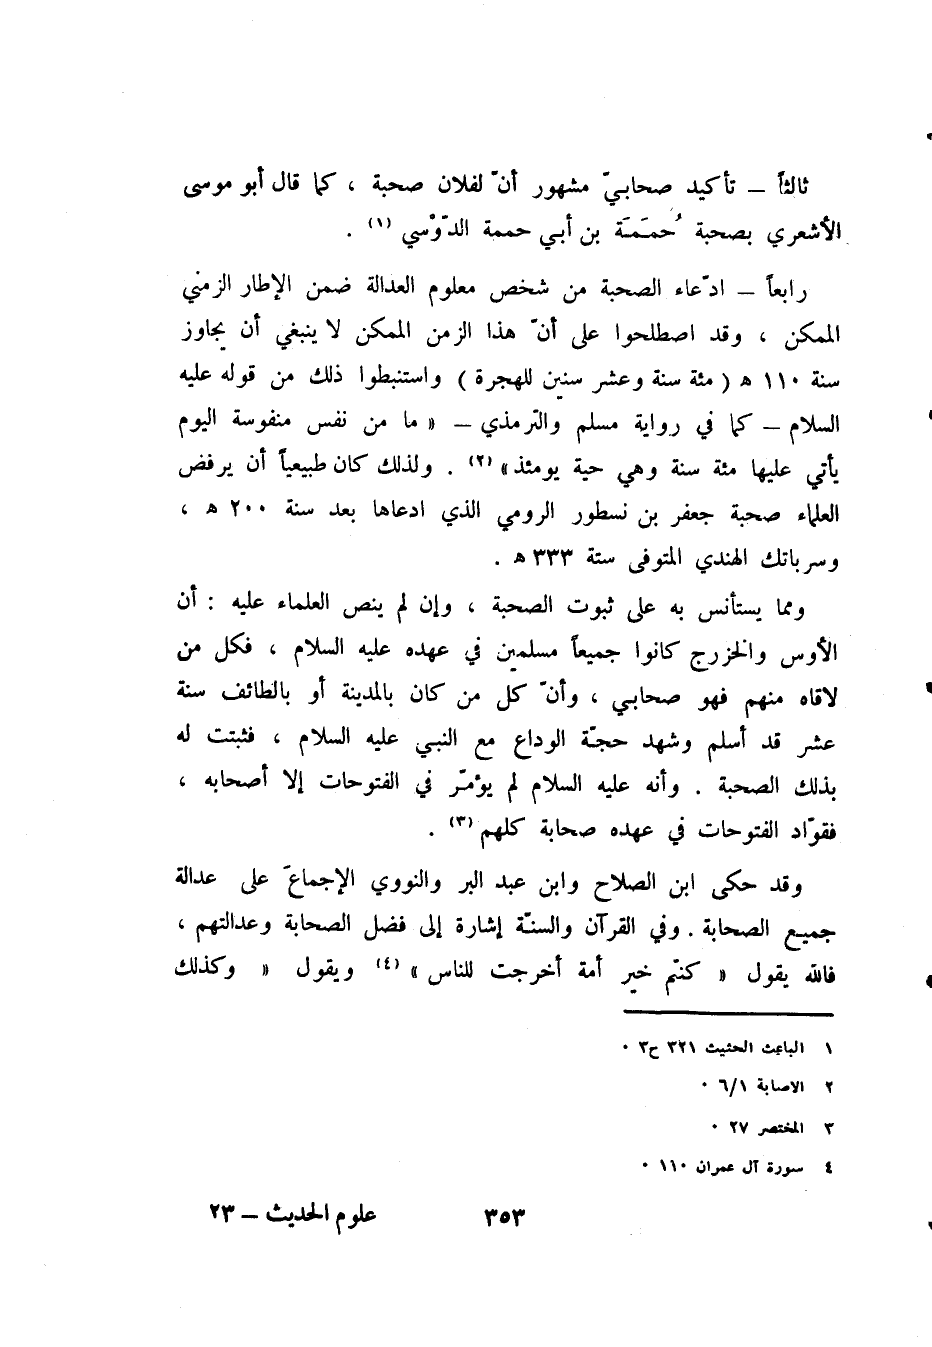 ثالثاً ــ تأكيد صحابيّ مشهور أنّ لفلان صحبة ، كما قال أبو موسى
الأشعري بصحبة حُمَمَة بن أبي حممة الدّوْسي (١) .
رابعاً ــ ادّعاء الصحبة من شخص معلوم العدالة ضمن الإطار الزمني
الممكن ، وقد اصطلحوا على أنّ هذا الزمن الممكن لا ينبغي أن يجاوز
سنة ١١٠ ه ( مئة سنة وعشر سنين للهجرة ) واستنبطوا ذلك من قوله عليه
السلام ــ كما في رواية مسلم والترمذي ــ « ما من نفس منفوسة اليوم
يأتي عليها مئة سنة وهي حية يومئذ» (٢) . ولذلك كان طبيعياً أن يرفض
العلماء صحبة جعفر بن نسطور الرومي الذي ادعاها بعد سنة ٢٠٠ ه ،
وسرباتك الهندي المتوفى ستة ٣٣٣ ه .
ومما يستأنس به على ثبوت الصحبة ، وإن لم ينص العلماء عليه : أن
الأوس والخزرج كانوا جميعاً مسلمين في عهده عليه السلام ، فكل من
لاقاه منهم فهو صحابي ، وأنّ كل من كان بالمدينة أو بالطائف سنة
عشر قد أسلم وشهد حجّة الوداع مع النبي عليه السلام ، فثبتت له
بذلك الصحبة . وأنه عليه السلام لم يؤمّر في الفتوحات إلا أصحابه ،
فقوّاد الفتوحات في عهده صحابة كلهم (٣) .
وقد حكى ابن الصلاح وابن عبد البر والنووي الإجماعَ على عدالة
جميع الصحابة . وفي القرآن والسنّة إشارة إلى فضل الصحابة وعدالتهم ،
فالله يقول « كنتم خير أمة أخرجت للناس » (٤) ويقول « وكذلك
١ الباعث الحثيث ٣٢١ ح٣ ٠
٢ الاصابة ٦/١ ٠
٣ المختصر ٢٧ ٠
٤ سورة آل عمران ١١٠ ٠
٣٥٣
علوم الحديث ــ ٢٣